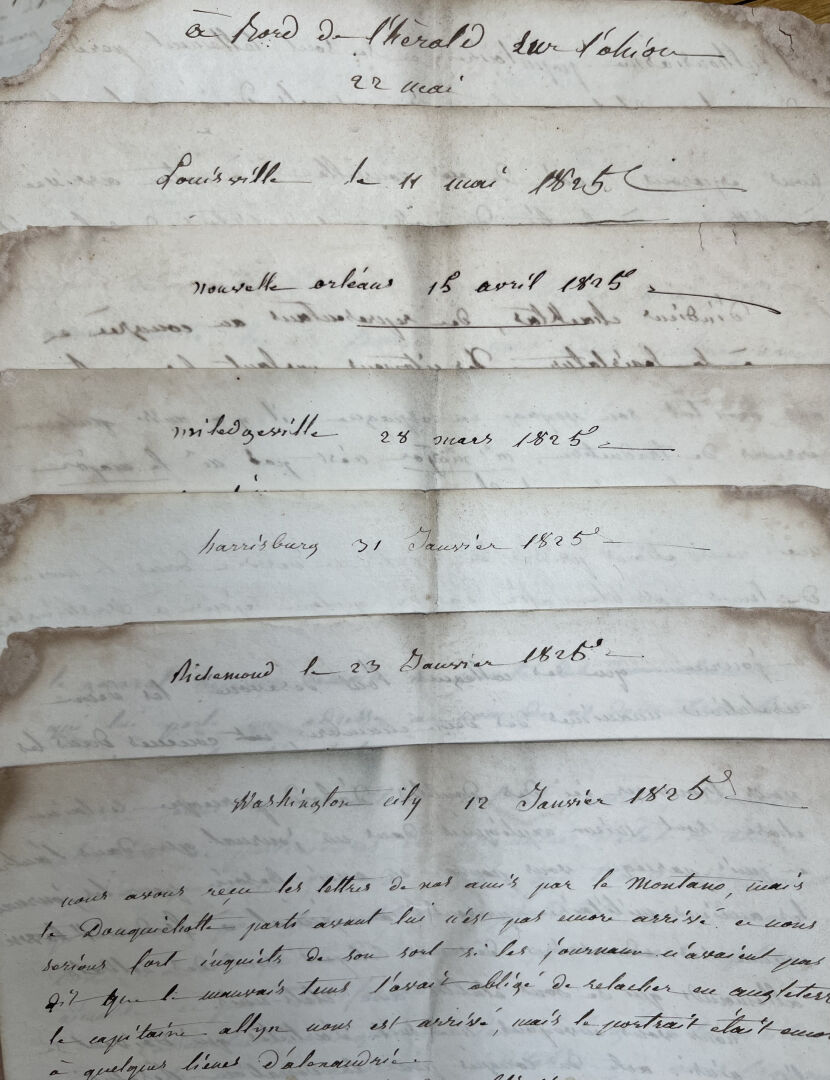 à Bord de l'hérald sur l'ohio
22 mai
Louisville le 11 mai 1825
nouvelle orléans 15 avril 1825
milledgeville 28 mars 1825
harrisburg 31 Janvier 1825
Richemond le 23 Janvier 1825
Washington city 12 Janvier 1825
nous avons reçu les lettres de nos amis par le Montano, mais
le Donquichotte parti avant lui n'est pas encore arrivé. et nous
serions fort inquiets de son sort si les journaux n'avaient pas
dit que le mauvais tems l'avait obligé de relacher en angleterre
le capitaine allyn nous est arrivé, mais le portrait était encore
à quelques lieues d'alexandrie.